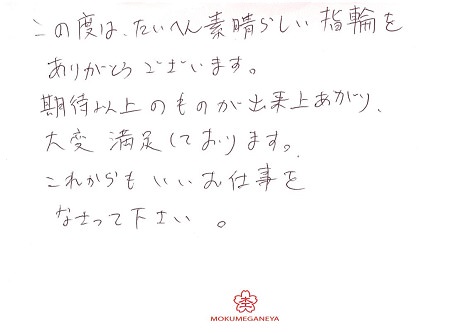 この度は、たいへん素晴らしい指輪を
ありがとうございます。
期待以上のものが出来上あがり、
大変 満足しております。
これからも いいお仕事を
なさって下さい 。
MOKUMEGANEYA